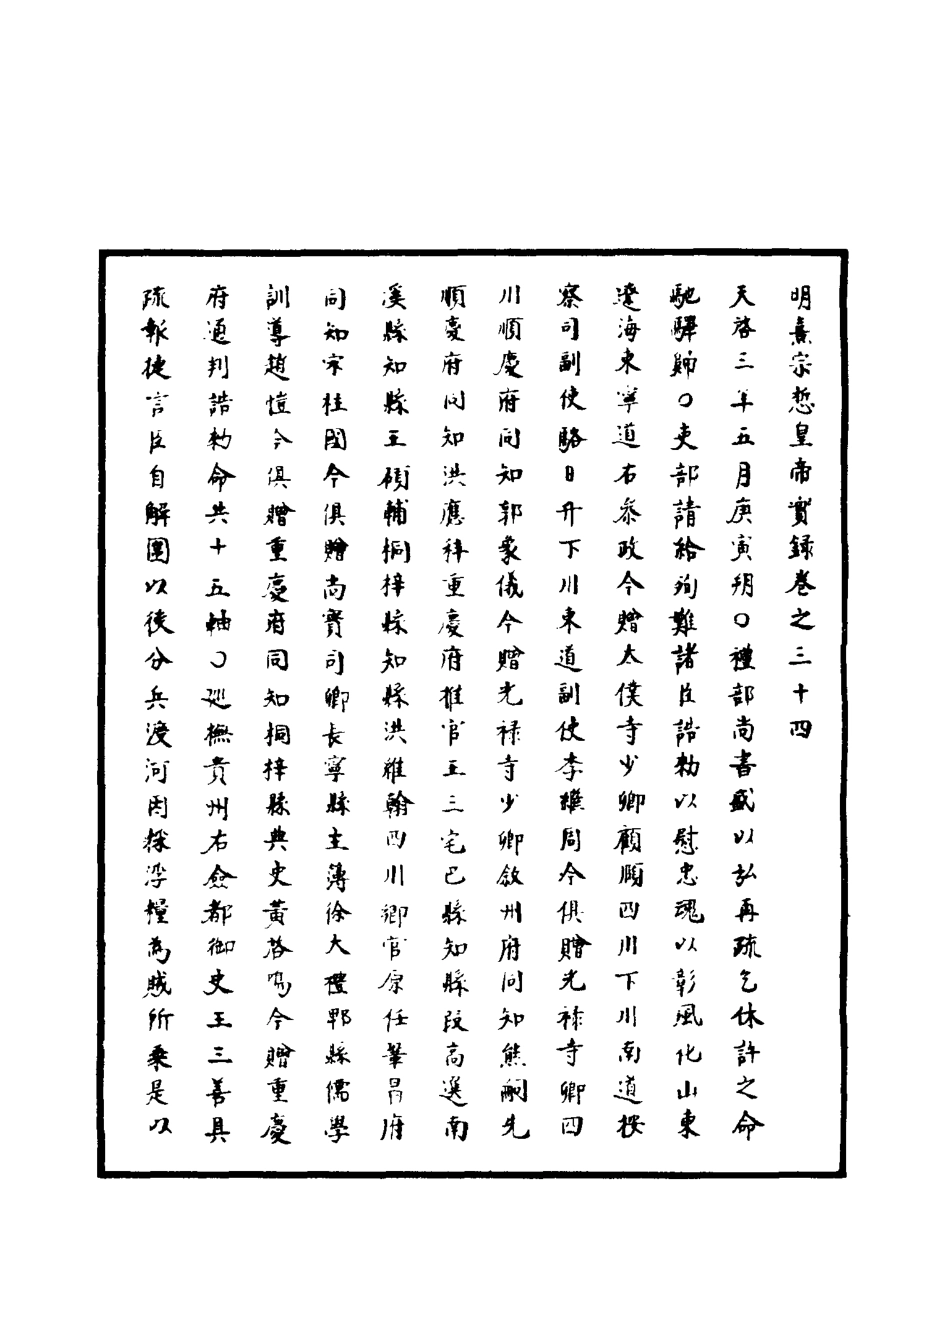 明熹宗悊皇帝實録卷之三十四
天啓三年五月庚寅朔○禮部尚書盛以弘再疏乞休許之命
馳驛歸○吏部請給殉難諸臣誥勑以慰忠魂以彰風化山東
遼海東寧道右叅政今贈太僕寺少卿顧頤四川下川南道按
察司副使駱日升下川東道副使李繼周今俱贈光禄寺卿四
川順慶府同知郭象儀今贈光禄寺少卿敘州府同知熊嗣先
順慶府同知洪應科重慶府推官王三宅巴縣知縣段高選南
溪縣知縣王碩輔桐梓縣知縣洪維翰四川鄉官原任鞏昌府
同知宋柱國今俱贈尚寳司卿長寧縣主簿徐大禮郫縣儒學
訓導趙愷今俱贈重慶府同知桐梓縣典史黃啓鳴今贈重慶
府通判誥勑命共十五軸○巡撫貴州右僉都御史王三善具
疏報捷言臣自解圍以後分兵渡河因採浮糧為賊所乘是以